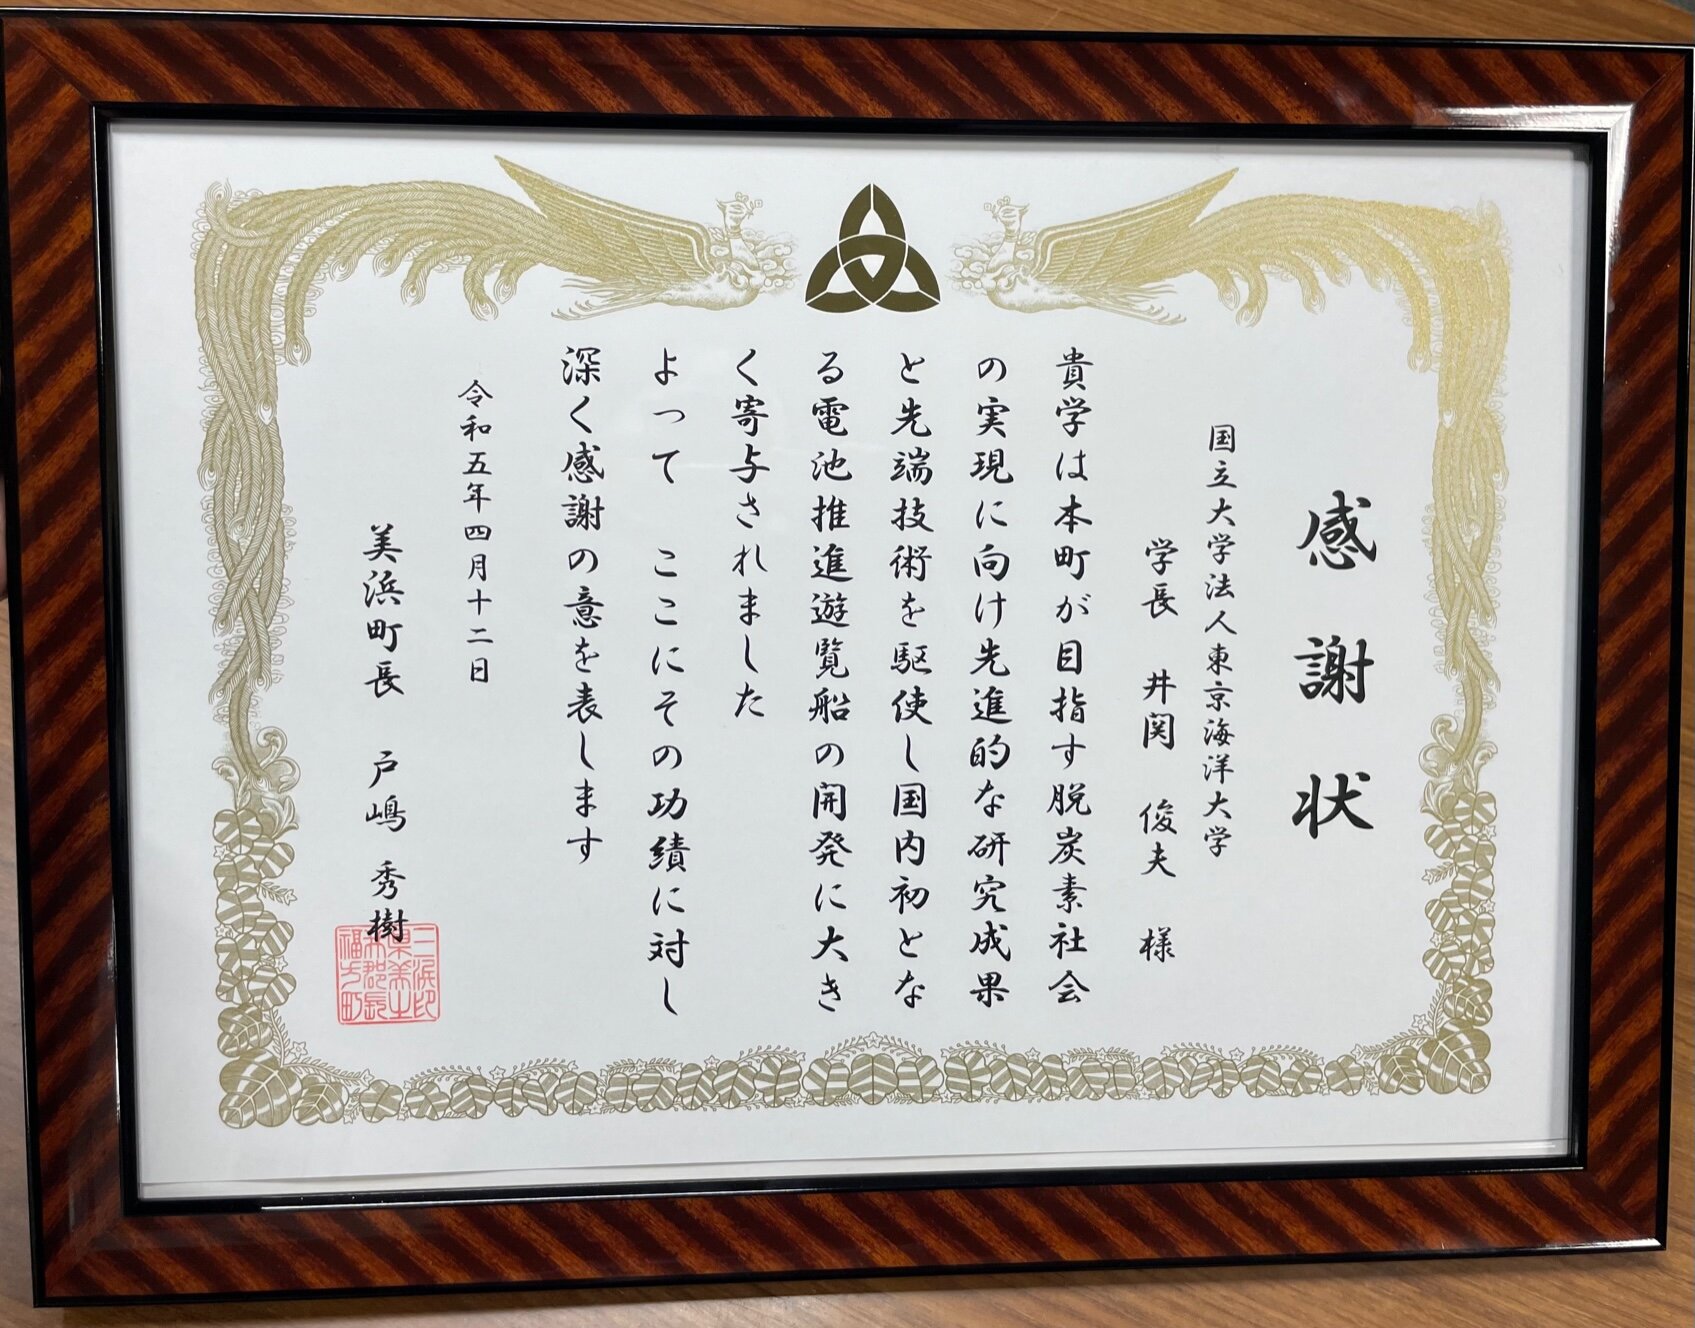 感謝状
国立大学法人東京海洋大学
学長 井関 俊夫 様
貴学は本町が目指す脱炭素社会
の実現に向け先進的な研究成果
と先端技術を駆使し国内初とな
る電池推進遊覧船の開発に大き
く寄与されました
よって ここにその功績に対し
深く感謝の意を表します
令和五年四月十二日
美浜町長 戸嶋 秀樹